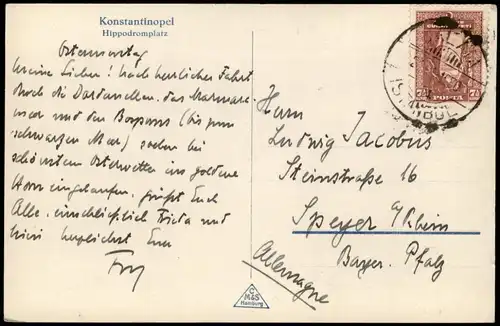 Konstantinopel
Hippodromplatz
Ostermontag
Meine Lieben! Nach herrlicher Fahrt
durch die Dardanellen, das Marmara-
meer und den Bosporus (bis zum
schwarzen Meer) soeben bei
schönstem Osterwetter im goldene
Horn eingelaufen, grüßt Euch
Alle, einschließlich Frieda und
herzlichst Euer
Herrn
Ludwig Jacobus
Steinstraße 16
Speyer a/Rhein
Bayer. Pfalz
Allemagne
ISTANBUL
7½ POSTA 7½
C
M&S
Hamburg